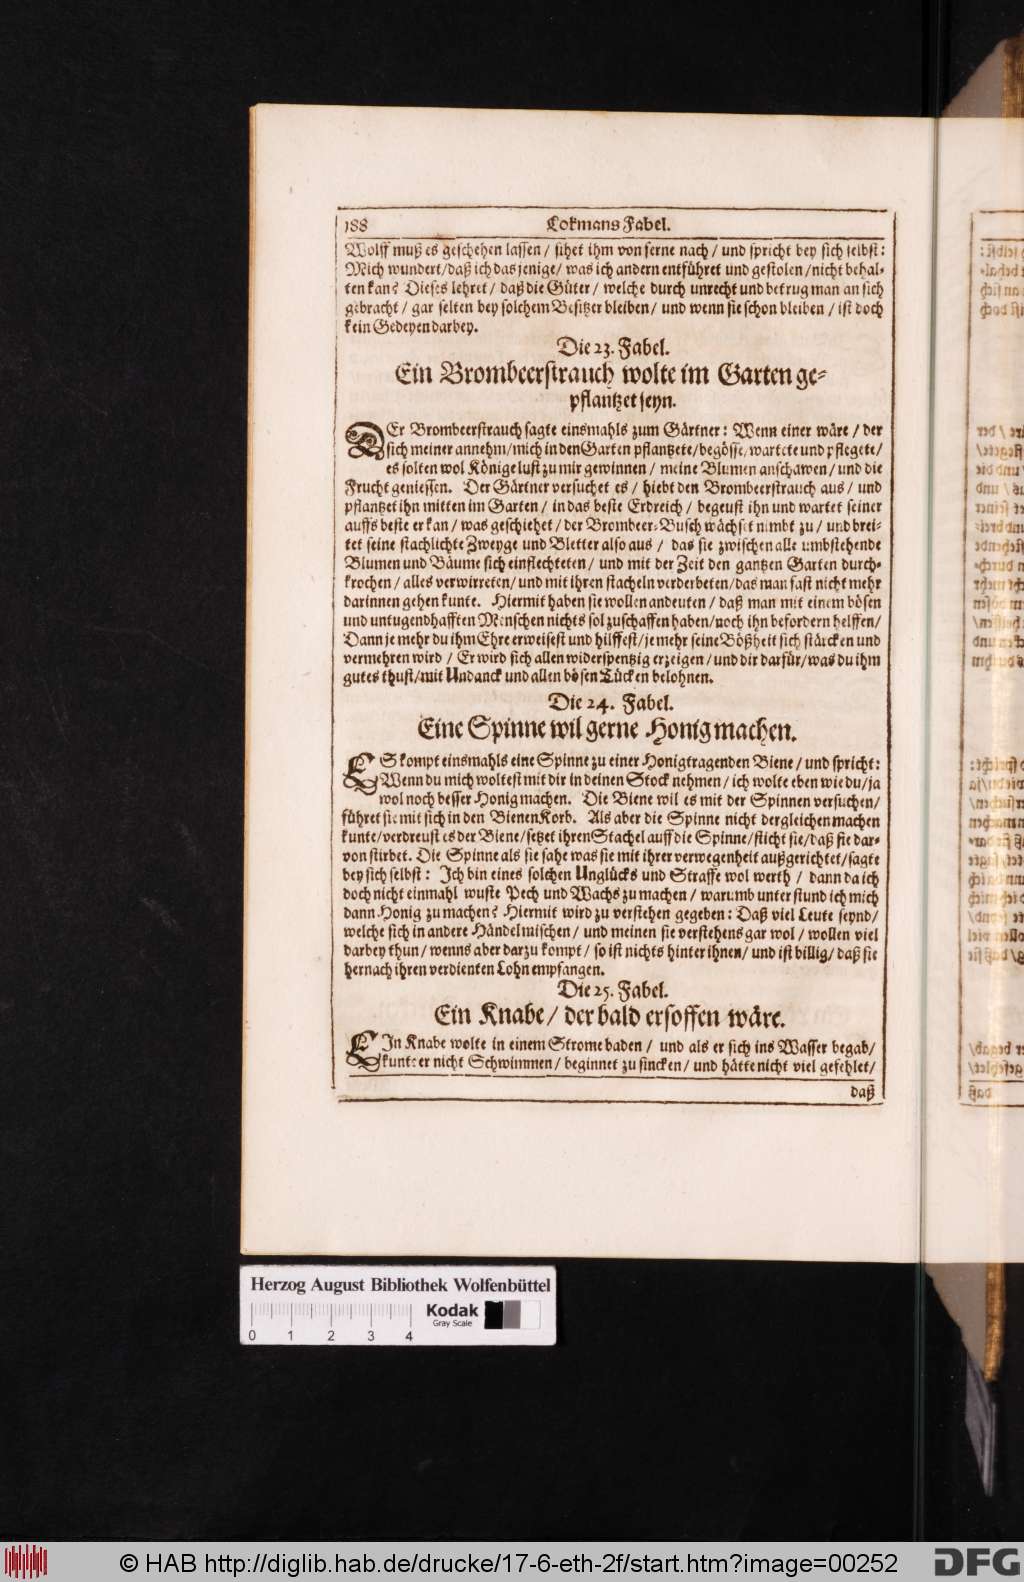 188
Lokmans Fabel.
Wolff muß es geschehen lassen / sihet ihm von ferne nach / und spricht bey sich selbst:
Mich wundert / daß ich das jenige / was ich andern entführet und gestolen / nicht behal-
ten kan? Dieses lehret / daß die Güter / welche durch unrecht und betrug man an sich
gebracht / gar selten bey solchem Besitzer bleiben / und wenn sie schon bleiben / ist doch
kein Gedeyen darbey.
Die 23. Fabel.
Ein Brombeerstrauch wolte im Garten ge-
pflantzet seyn.
DEr Brombeerstrauch sagte einsmahls zum Gärtner: Wenn einer wäre / der
sich meiner annehm / mich in den Garten pflantzete / begösse / wartete und pflegete /
es solten wol Könige lust zu mir gewinnen / meine Blumen anschawen / und die
Frucht geniessen. Der Gärtner versuchet es / hiebt den Brombeerstrauch aus / und
pflantzet ihn mitten im Garten / in das beste Erdreich / begeust ihn und wartet seiner
auffs beste er kan / was geschiehet / der Brombeer-Busch wächset nimbt zu / und brei-
tet seine stachlichte Zweyge und Bletter also aus / das sie zwischen alle umbstehende
Blumen und Bäume sich einflechteten / und mit der Zeit den gantzen Garten durch-
krochen / alles verwirreten / und mit ihren stacheln verderbeten / das man fast nicht mehr
darinnen gehen kunte. Hiermit haben sie wollen andeuten / daß man mit einem bösen
und untugendhafften Menschen nichts sol zuschaffen haben / noch ihn befordern helffen /
Dann je mehr du ihm Ehre erweisest und hilffest / je mehr seine Bößheit sich stärcken und
vermehren wird / Er wird sich allen widerspentzig erzeigen / und dir darfür / was du ihm
gutes thust / mit Undanck und allen bösen Tücken belohnen.
Die 24. Fabel.
Eine Spinne wil gerne Honig machen.
ES kompt einsmahls eine Spinne zu einer Honigtragenden Biene / und spricht:
Wenn du mich woltest mit dir in deinen Stock nehmen / ich wolte eben wie du / ja
wol noch besser Honig machen. Die Biene wil es mit der Spinnen versuchen /
führet sie mit sich in den BienenKorb. Als aber die Spinne nicht dergleichen machen
kunte / verdreust es der Biene / setzet ihren Stachel auff die Spinne / sticht sie / daß sie dar-
von stirbet. Die Spinne als sie sahe was sie mit ihrer verwegenheit außgerichtet / sagte
bey sich selbst: Ich bin eines solchen Unglücks und Straffe wol werth / dann da ich
doch nicht einmahl wuste Pech und Wachs zu machen / warumb unterstund ich mich
dann Honig zu machen? Hiermit wird zu verstehen gegeben: Daß viel Leute seynd /
welche sich in andere Händel mischen / und meinen sie verstehens gar wol / wollen viel
darbey thun / wenns aber darzu kompt / so ist nichts hinter ihnen / und ist billig / daß sie
hernach ihren verdienten Lohn empfangen.
Die 25. Fabel.
Ein Knabe / der bald ersoffen wäre.
EIn Knabe wolte in einem Strome baden / und als er sich ins Wasser begab /
kunte er nicht Schwimmen / beginnet zu sincken / und hätte nicht viel gefehlet /
daß
Herzog August Bibliothek Wolfenbüttel
Kodak
Gray Scale
0 1 2 3 4
© HAB http://diglib.hab.de/drucke/17-6-eth-2f/start.htm?image=00252
DFG